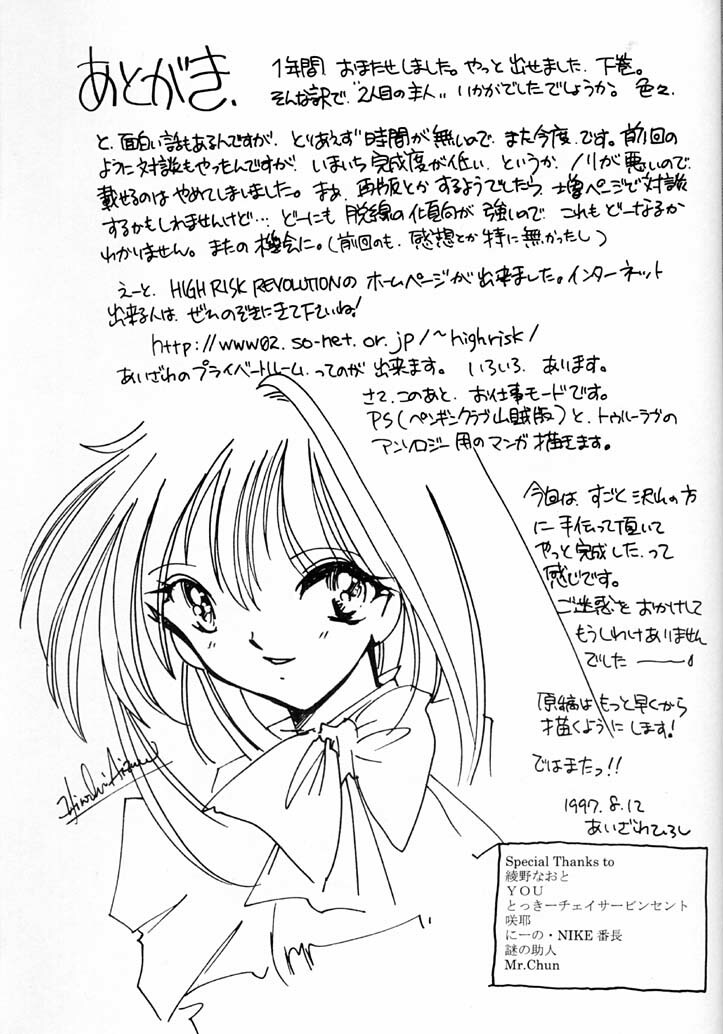 あとがき.
1年間、おまたせしました。やっと出せました、下巻。
そんな訳で、"2人目の主人"、いかがでしたでしょうか。色々
と、面白い話もあるんですが、とりあえず時間が無いので、また今度です。前回の
ように対談もやったんですが、いまいち完成度が低い、というか、ノリが悪いので、
載せるのはやめてしまいました。まあ、再版とかするようでしたら、増ページで対談
するかもしれませんけど… どーにも脱線の傾向が強いので、これもどーなるか
わかりません。またの機会に。(前回のも、感想とか特に無かったし)
えーと、HIGH RISK REVOLUTIONの ホームページが出来ました。インターネット
出来る人は、ぜひのぞきにきて下さいね!
http://www02.so-net.or.jp/~highrisk/
あいざわのプライベートルーム、ってのが出来ます。いろいろ、あります。
さて、このあと、お仕事モードです。
PS(ペンギンクラブ山賊版)と、トゥルーラブの
アンソロジー用のマンガ描きます。
今回は、すごと沢山の方
に手伝って頂いて
やっと完成した、って
感じです。
ご迷惑をおかけして
もうしわけありません
でした――――。
原稿はもっと早くから
描くようにします!
ではまたっ!!
1997.8.12
あいざわひろし
Hiroshi Aizawa
Special Thanks to
綾野なおと
YOU
とっきーチェイサービンセント
咲耶
にーの・NIKE番長
謎の助人
Mr.Chun